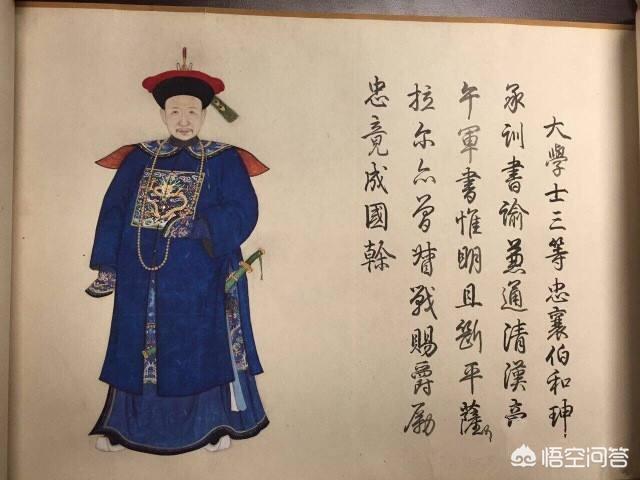 大學士三等忠襄伯和珅
承訓書諭兼通清漢旁
午軍書惟明且斷平薩
拉尔亦曾督戰賜爵励
忠竟成國幹
悟空问答